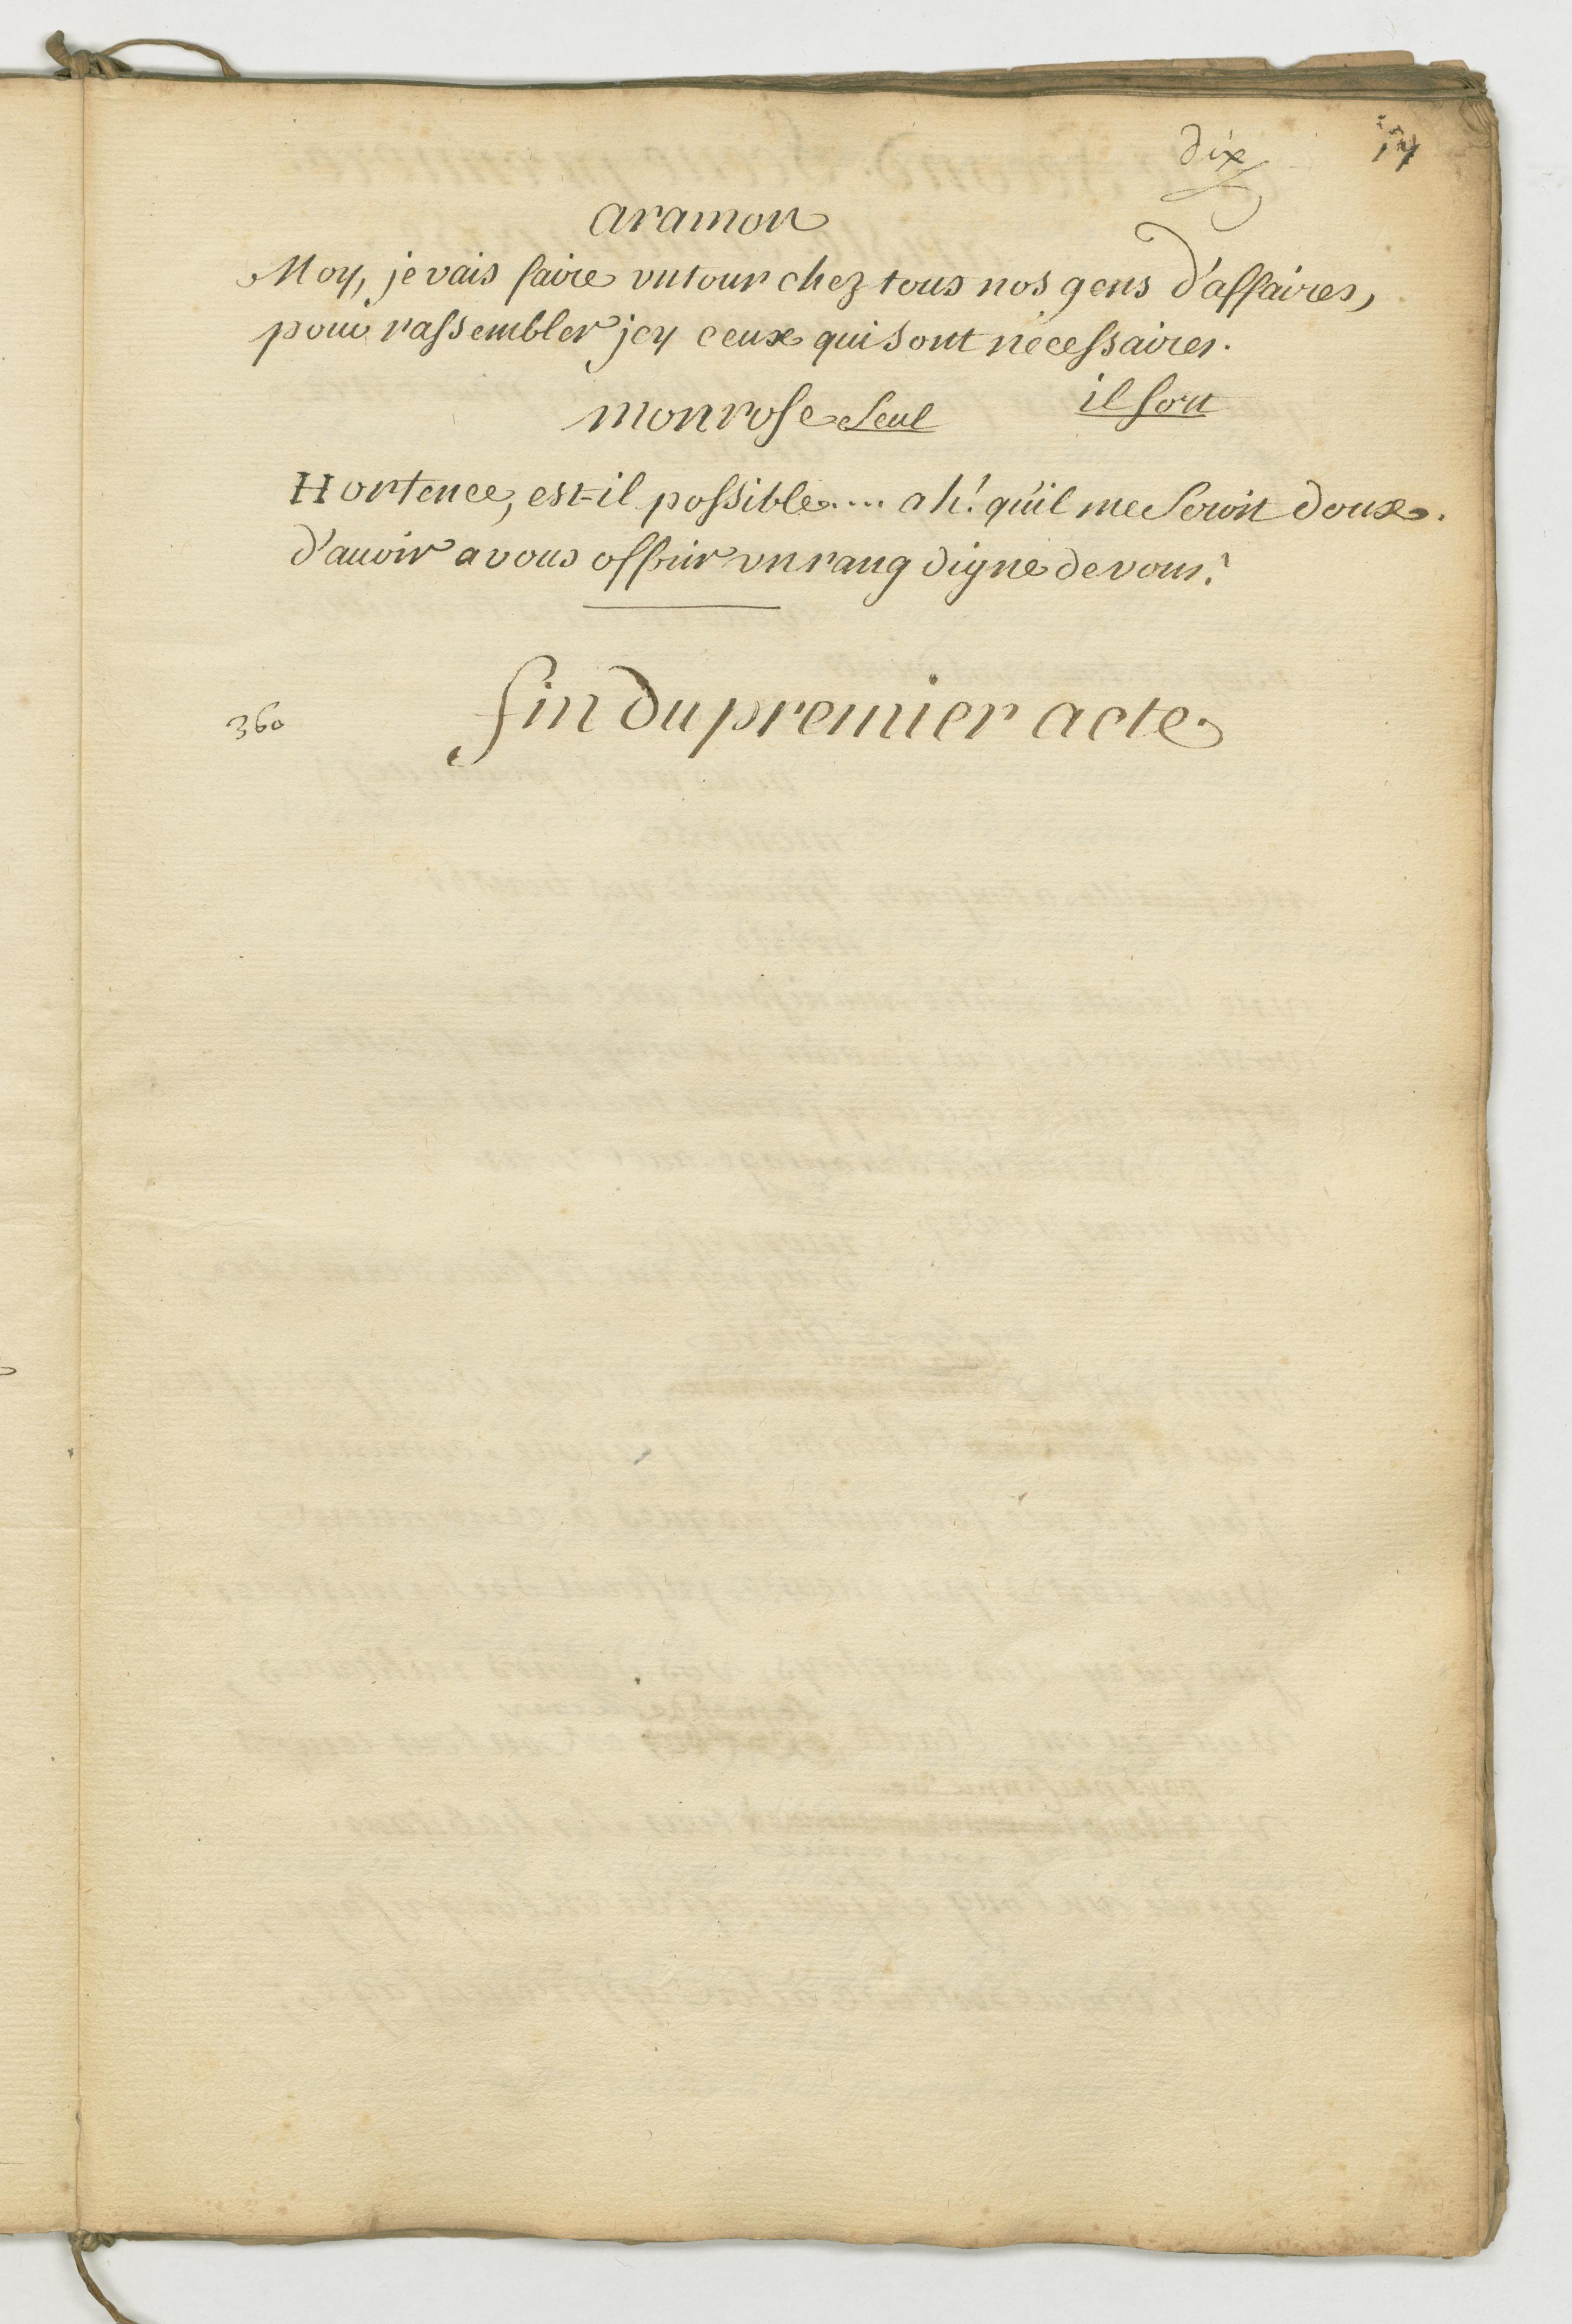 dix
aramon
Moy, je vais faire vn tour chez tous nos gens d'affaires,
pour rassembler jcy ceux qui sont nécessaires.
il sort
monrose seul
Hortence, est-il possible.... ah! qu'il me seroit doux.
d'auoir a vous offrir vn rang digne de vous!
fin du premier acte
360